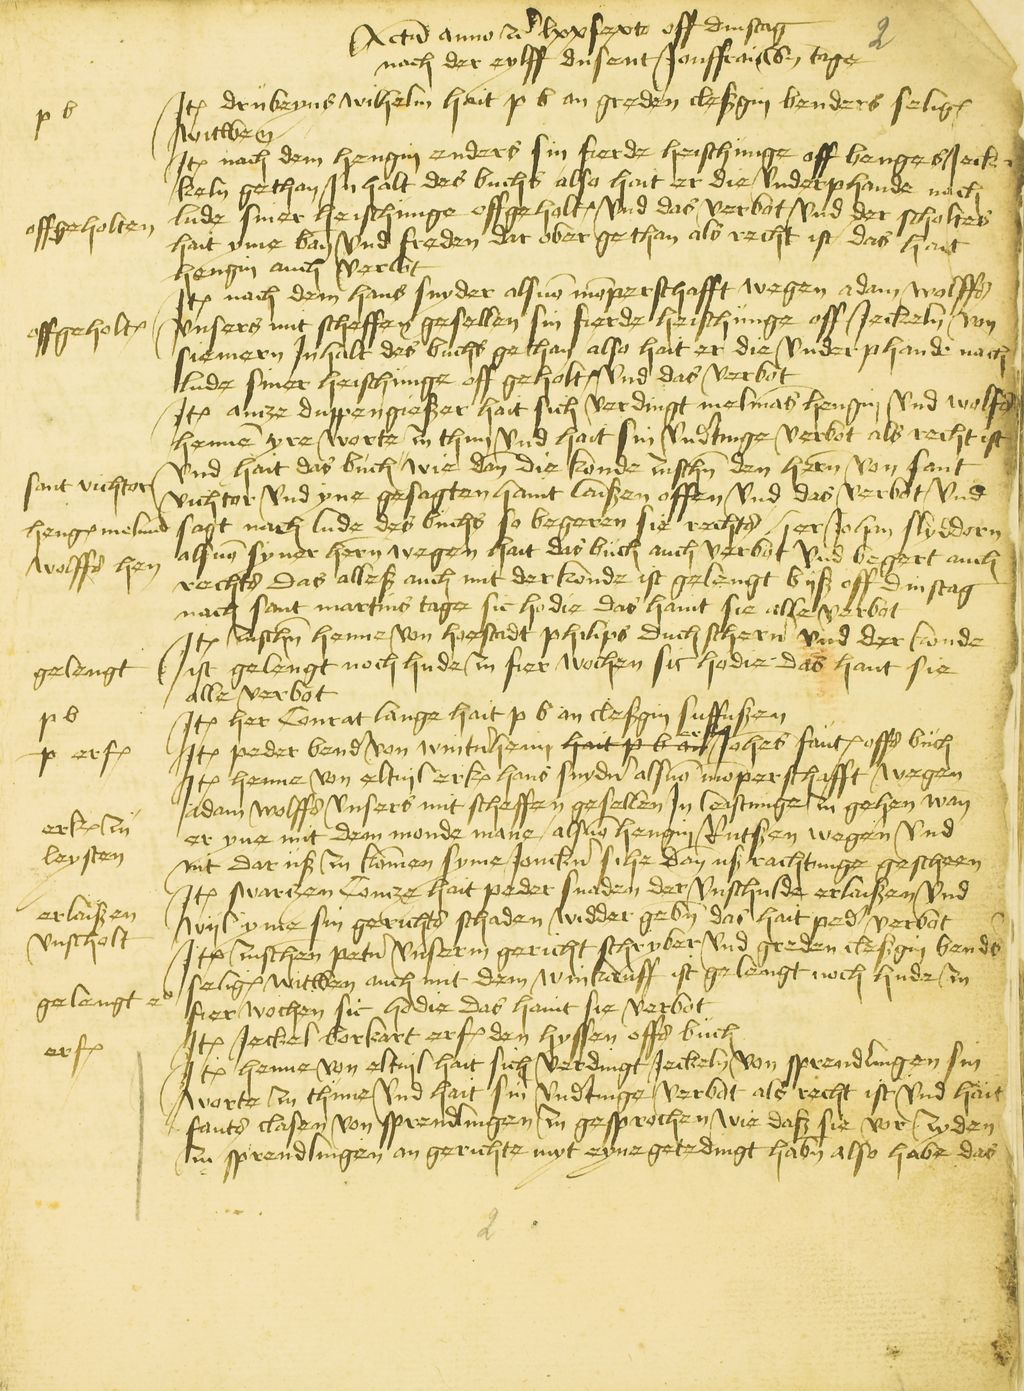 Actum anno M° lxxsexto off dinstag 2
nach der eylff dusent Jonffrauwen tage
p b Itm drubeyns wilhelm hait p b an greden cleßgin benders selig
witwen
Itm nach dem hengin enders sin fierde heischunge off henges Jeck
keln gethan Inhalt des buchs also hait er die underphande nach
offgeholten lude siner heischunge offgeholt und das verbot und der scholtes
hait yme ban und freden dar ober gethan als recht ist das hait
hengin auch verbot
Itm nach dem hans snyder als von momperschafft wegen adam wolffs
offgeholt unsers mit scheffen gesellen sin fierde heischunge off Jeckeln von
siemern Inhalt des buchs gethan also hait er die underphande nach
lude siner heischunge off geholt und das verbot
Itm antze duppengießer hait sich verdingt melmans hengin und wolfs
henne yre worte zu thun und hait sin underdinge verbot als recht ist
und hait das buch wie dan die konde zuschen den hern von sant
sant victor victor und yne gesagten hant laißen offen und das verbot und
heng melman sagt nach lude des buchs so begeren sie rechts her Johan slyddorn
wolffs hen als von syner hern wegen hait das buch auch verbot und begert auch
rechts das alleß auch mit der konde ist gelengt biß off dinstag
nach sant martins tage sic hodie das hant sie alle verbot
Itm zuschen henne von hoestadt philips duchscherer und der konde
gelengt ist gelengt noch hude zu fier wochen sic hodie das hant sie
alle verbot
p b Itm her Conrat lange hait p b an cleßgin suffußen
p erf Itm peder bender von winternheim hait p b an erf Johes faut offs buch
Itm henne von eltvil erk hans snyder als von momperschafft wegen
adam wolffs unsers mit scheffen gesellen In leistunge zu gehen wan
erk zu er yne mit dem monde mane als von hengin Rutßen wegen und
leysten mit dar uß zu komen syme Jonckern sihe dan uß rachtunge gescheen
Itm swartzen Contze hait peder snaden der unschulde erlaißen und
erlaißen wijl yme sin gerichts schaden widder geben das hait peder verbot
unscholt Itm zuschen petern unserm gericht schryber und greden cleßgin benders
gelengt selig witwen auch mit dem winkauff ist gelengt noch hude zu
fier wochen sic hodie das hant sie verbot
erf Itm Jeckel borkart erf den hyssen offs buch
Itm henne von eltvil hait sich verdingt Jeckeln von sprendlingen sin
worte zu thune und hait sin underdinge verbot als recht ist und hait
fauts clasen von sprendlingen zu gesprochen wie daß sie vor zyden
zu sprendlingen an gerichte myt eyne getedingt haben also habe das
2